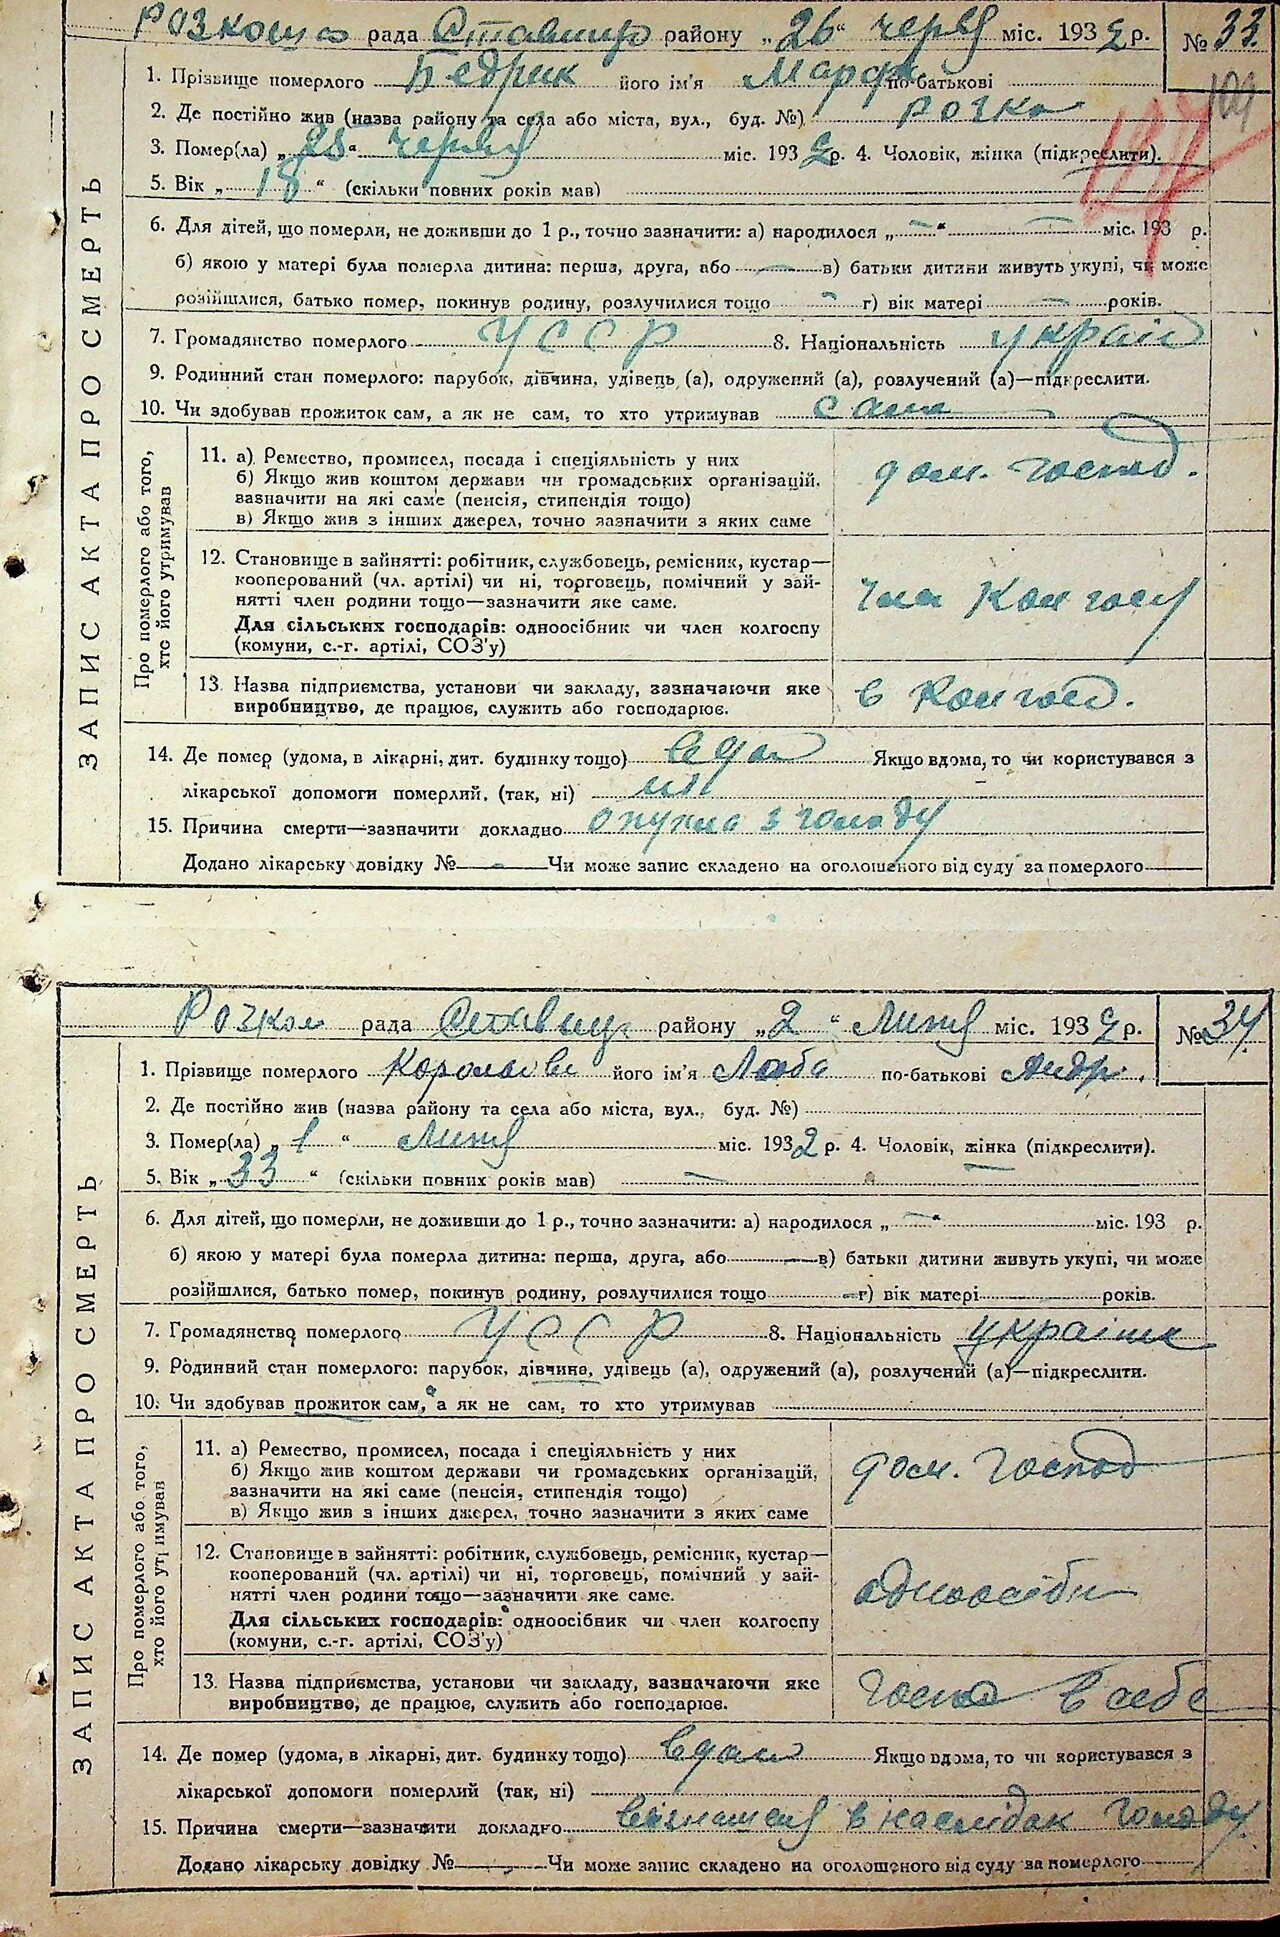 Розкошна рада Ставищ району „26“ червя міс. 1932 р. № 33.
1. Прізвище померлого Бедрик його ім'я Марфа по-батькові
109
2. Де постійно жив (назва району та села або міста, вул., буд. №) Розко
3. Помер(ла) „25“ червя міс. 1932 р. 4. Чоловік, жінка (підкреслити).
5. Вік „18“ (скільки повних років мав)
6. Для дітей, що померли, не доживши до 1 р., точно зазначити: а) народилося „—“ — міс. 193 р.
б) якою у матері була померла дитина: перша, друга, або — в) батьки дитини живуть укупі, чи може
розійшлися, батько помер, покинув родину, розлучилися тощо — г) вік матері — років.
7. Громадянство померлого УССР 8. Національність україн
9. Родинний стан померлого: парубок, дівчина, удівець (а), одружений (а), розлучений (а)—підкреслити.
10. Чи здобував прожиток сам, а як не сам, то хто утримував сама
11. а) Ремество, промисел, посада і спеціяльність у них
б) Якщо жив коштом держави чи громадських організацій, дом. господ.
зазначити на які саме (пенсія, стипендія тощо)
в) Якщо жив з інших джерел, точно зазначити з яких саме
12. Становище в зайнятті: робітник, службовець, ремісник, кустар—
кооперований (чл. артілі) чи ні, торговець, помічний у зай-
нятті член родини тощо—зазначити яке саме. член Колгосу
Для сільських господарів: одноосібник чи член колгоспу
(комуни, с.-г. артілі, СОЗ'у)
13. Назва підприємства, установи чи закладу, зазначаючи яке в Колгосп.
виробництво, де працює, служить або господарює.
Про померлого або того,
хто його утримував
ЗАПИС АКТА ПРО СМЕРТЬ
14. Де помер (удома, в лікарні, дит. будинку тощо) вдом Якщо вдома, то чи користувався з
лікарської допомоги померлий, (так, ні) ні
15. Причина смерти—зазначити докладно опухла з голоду
Додано лікарську довідку № — Чи може запис складено на оголошеного від суду за померлого
Розкош рада Ставищ. району „2“ Липня міс. 1932 р. № 34.
1. Прізвище померлого його ім'я Люба по-батькові Андр.
2. Де постійно жив (назва району та села або міста, вул., буд. №)
3. Помер(ла) „1“ Липня міс. 1932 р. 4. Чоловік, жінка (підкреслити).
5. Вік „33“ (скільки повних років мав) —
6. Для дітей, що померли, не доживши до 1 р., точно зазначити: а) народилося „—“ міс. 193 р.
б) якою у матері була померла дитина: перша, друга, або — в) батьки дитини живуть укупі, чи може
розійшлися, батько помер, покинув родину, розлучилися тощо — г) вік матері років.
7. Громадянство померлого УССР 8. Національність українк
9. Родинний стан померлого: парубок, дівчина, удівець (а), одружений (а), розлучений (а)—підкреслити.
10. Чи здобував прожиток сам, а як не сам, то хто утримував
11. а) Ремество, промисел, посада і спеціяльність у них
б) Якщо жив коштом держави чи громадських організацій, дом. господ
зазначити на які саме (пенсія, стипендія тощо)
в) Якщо жив з інших джерел, точно зазначити з яких саме
12. Становище в зайнятті: робітник, службовець, ремісник, кустар—
кооперований (чл. артілі) чи ні, торговець, помічний у зай-
нятті член родини тощо—зазначити яке саме. одноосібн
Для сільських господарів: одноосібник чи член колгоспу
(комуни, с.-г. артілі, СОЗ'у)
13. Назва підприємства, установи чи закладу, зазначаючи яке
виробництво, де працює, служить або господарює. господ в себе
Про померлого або того,
хто його утримував
ЗАПИС АКТА ПРО СМЕРТЬ
14. Де помер (удома, в лікарні, дит. будинку тощо) вдом Якщо вдома, то чи користувався з
лікарської допомоги померлий (так, ні)
15. Причина смерти—зазначити докладно внаслідок голоду
Додано лікарську довідку № — Чи може запис складено на оголошеного від суду за померлого